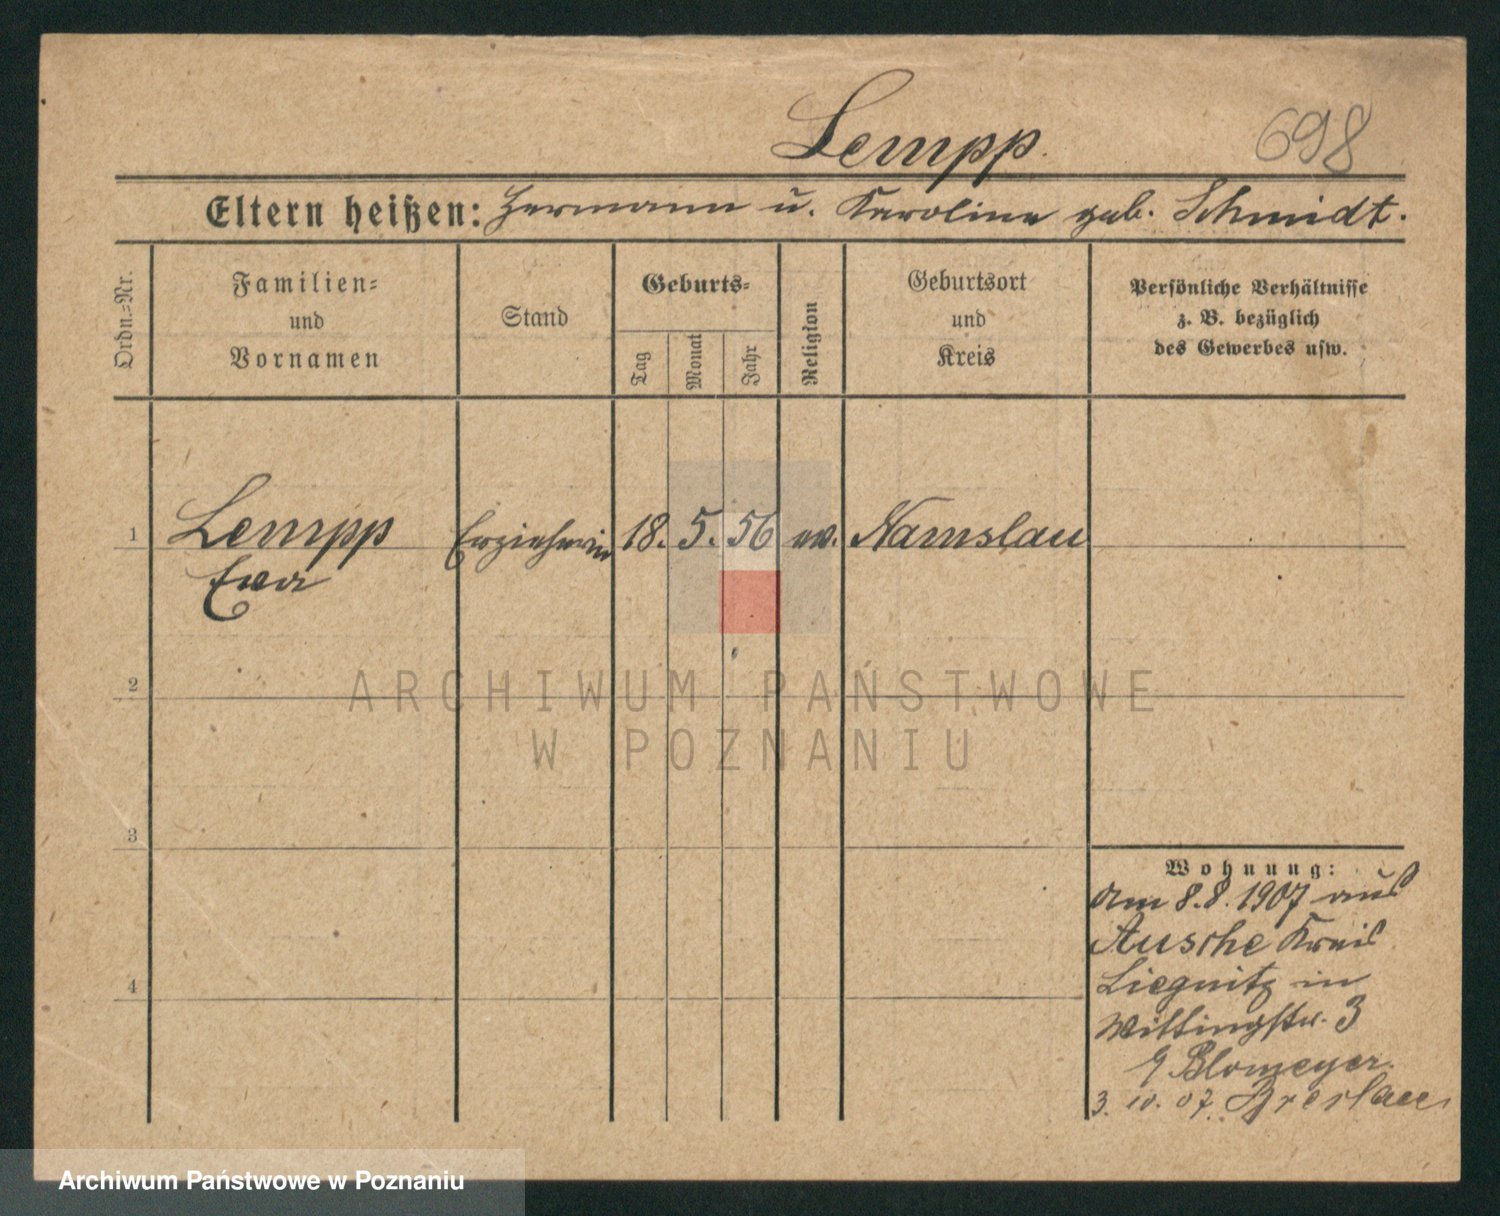 Lempp.
698
Eltern heißen: Hermann u. Karoline geb. Schmidt.
Ordn.-Nr.
Familien-
und
Vornamen
Stand
Geburts-
Tag
Monat
Jahr
Religion
Geburtsort
und
Kreis
Persönliche Verhältnisse
z. B. bezüglich
des Gewerbes usw.
1
Lempp
Eva
Erzieherin
18.
5.
56
ev.
Namslau
2
ARCHIWUM PAŃSTWOWE
W POZNANIU
3
Wohnung:
Am 8.8.1907 aus
Ausche Kreis
Liegnitz in
4
Wittingstr. 3
Blomeyer.
3. 10. 07. Breslau
Archiwum Państwowe w Poznaniu